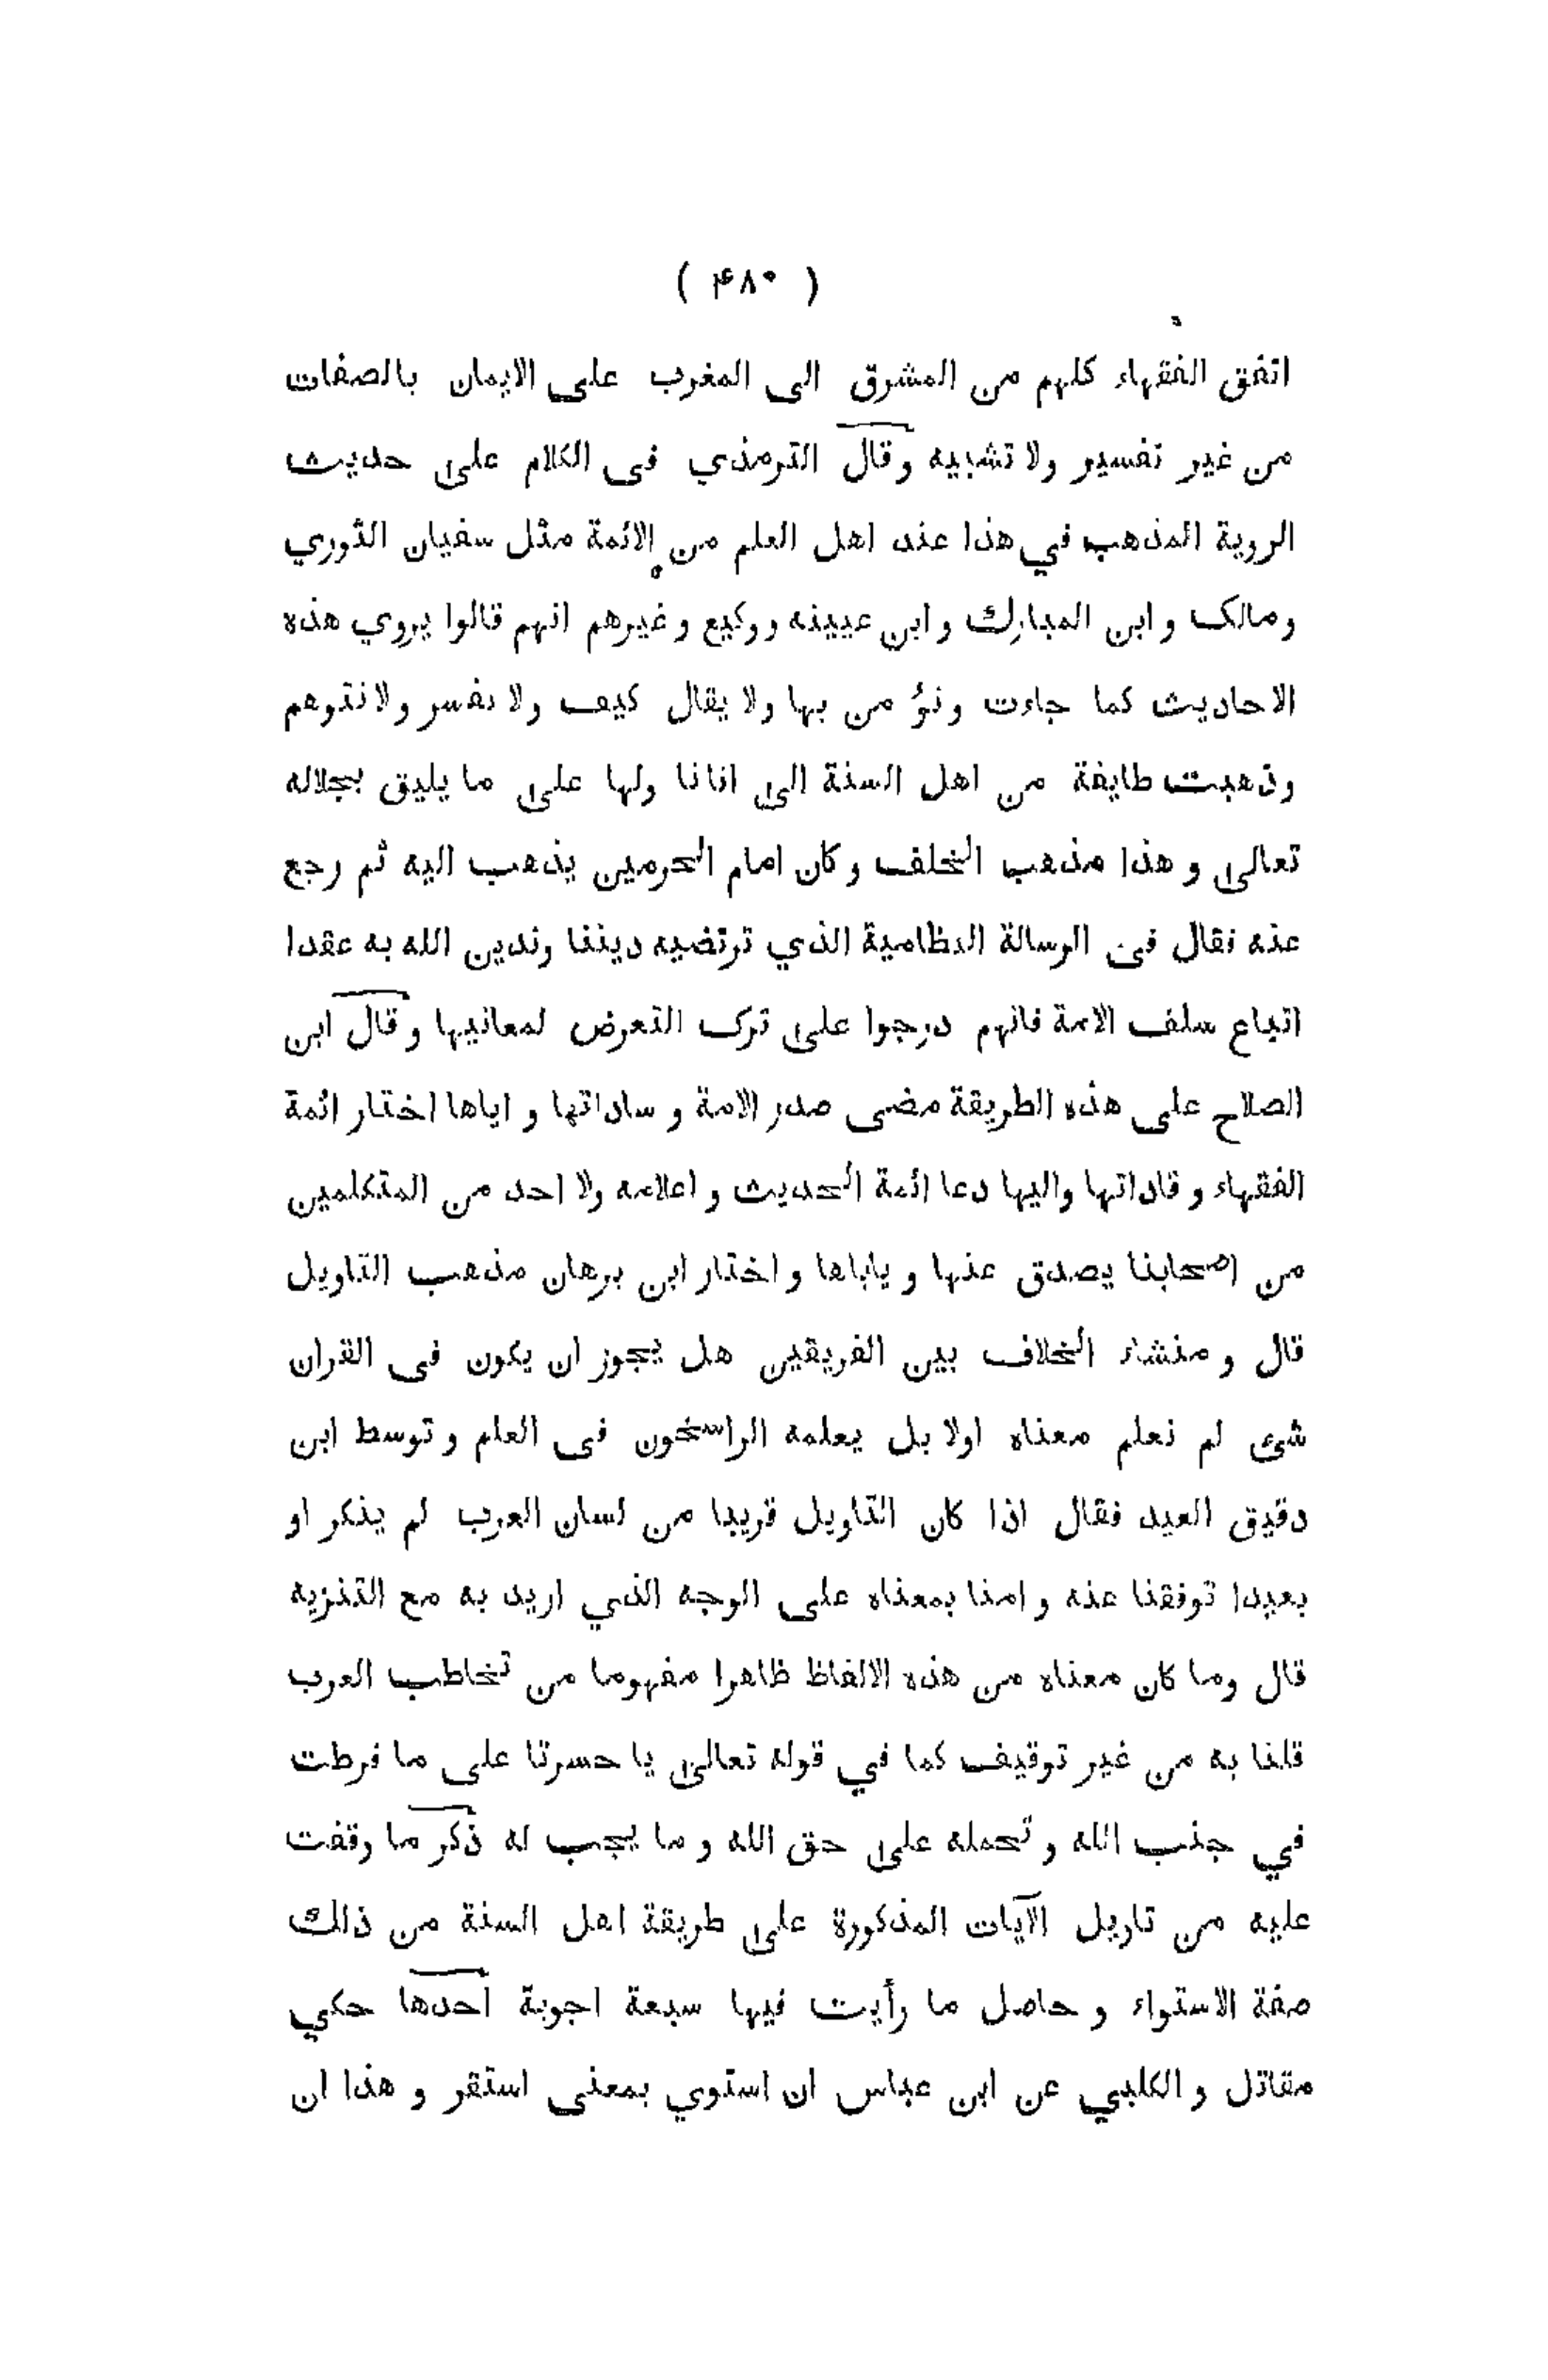 ( ۴۸۰ )
اتفق الفقهاء كلهم من المشرق الى المغرب على الايمان بالصفات
من غير تفسير ولا تشبيه وقال الترمذي فى الكلام على حديث
الروية المذهب في هذا عند اهل العلم من الائمة مثل سفيان الثوري
ومالك وابن المبارك وابن عيينه ووكيع وغيرهم انهم قالوا يروي هذه
الاحاديث كما جاءت ونؤمن بها ولا يقال كيف ولا نفسر ولا نتوهم
وذهبت طايفة من اهل السنة الى انانا ولها على ما يليق بجلاله
تعالى و هذا مذهب الخلف و كان امام الحرمين يذهب اليه ثم رجع
عنه فقال فى الرسالة النظامية الذي ترتضيه ديننا وندين الله به عقدا
اتباع سلف الامة فانهم درجوا على ترك التعرض لمعانيها و قال ابن
الصلاح على هذه الطريقة مضى صدر الامة و ساداتها و اياها اختار ائمة
الفقهاء و قاداتها واليها دعا ائمة الحديث و اعلامه ولا احد من المتكلمين
من اصحابنا يصدق عنها و ياباها و اختار ابن برهان مذهب التاويل
قال و منشاء الخلاف بين الفريقين هل يجوز ان يكون فى القران
شئ لم نعلم معناه اولا بل يعلمه الراسخون فى العلم و توسط ابن
دقيق العيد فقال اذا كان التاويل قريبا من لسان العرب لم ينكر او
بعيدا توفقنا عنه و امنا بمعناه على الوجه الذي اريد به مع التنزيه
قال وما كان معناه من هذه الالفاظ ظاهرا مفهوما من تخاطب العرب
قلنا به من غير توقيف كما في قوله تعالى يا حسرتا على ما فرطت
في جنب الله و تحمله على حق الله و ما يجب له ذكر ما وقفت
عليه من تاريل الآيات المذكورة على طريقة اهل السنة من ذلك
صفة الاستواء و حاصل ما رأيت فيها سبعة اجوبة احدها حكي
مقاتل و الكلبي عن ابن عباس ان استوي بمعنى استقر و هذا ان